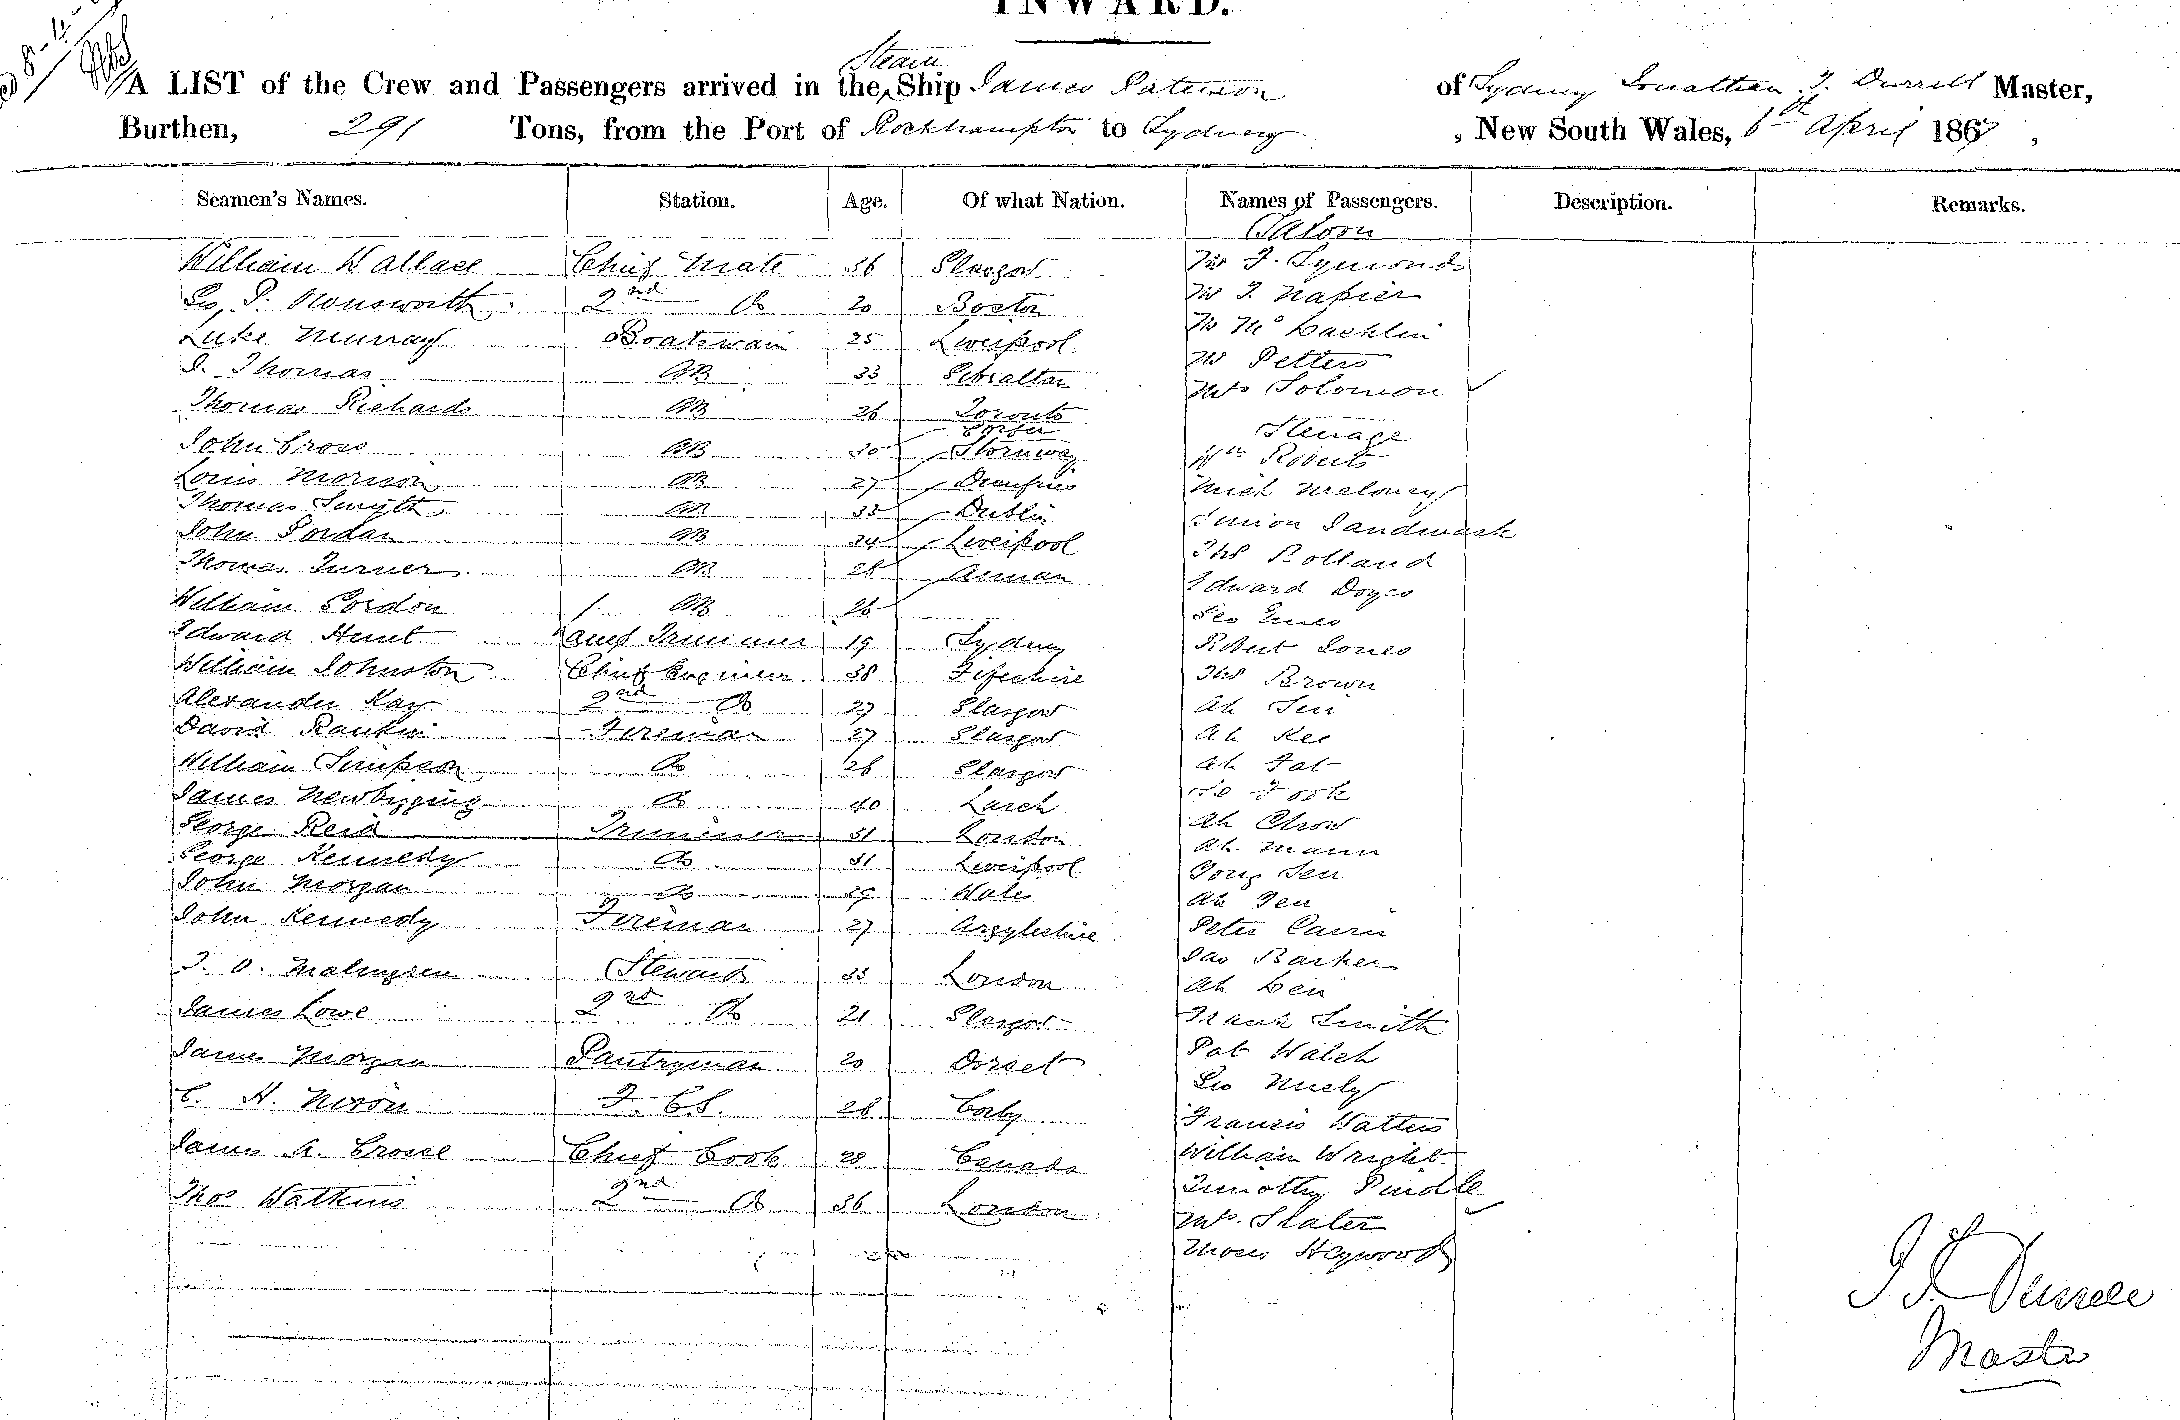 INWARD.
A LIST of the Crew and Passengers arrived in the Steam Ship James Paterson of Sydney Jonathan T. Durrell Master,
Burthen, 291 Tons, from the Port of Rockhampton to Sydney, New South Wales, 6th April 186
Seamen's Names. Station. Age. Of what Nation. Names of Passengers. Description. Remarks.
Saloon
William Wallace Chief Mate 36 Glasgow Mr J. Symonds
2nd Do 20 Boston Mr J. Napier
Luke Murray Boatswain 25 Liverpool Mr McLachlin
J. Thomas AB 33 Gibraltar Mr Petters
Thomas Richards AB 26 Toronto Mrs Solomon
Steerage
John Cross AB 30 Stornway Wm Roberts
Louis Morrison AB 27 Dumfries Mich Meloney
Thomas Smyth AB 33 Dublin Simon
John Jordan AB 24 Liverpool Thos Rolland
Thomas Turner AB 28 Annan Edward
William Gordon AB 26 Geo
Edward Hunt Trimmer 19 Sydney Robert Jones
William Johnston Chief Engineer 38 Fifeshire Thos Brown
Alexander Kay 2nd Do 29 Glasgow Ah Sin
David Rankin Fireman 27 Glasgow Ah Kee
William Simpson Do 26 Glasgow Ah Fat
James Newbigging Do 40 Fook
George Reid Trimmer 31 London Ah Chow
George Kennedy Do 31 Liverpool Ah Mann
John Morgan Do 29 Wales Tong Sen
Ah Yen
John Kennedy Fireman 27 Argyleshire Peter
Jas Barker
J. O. Malmgren Steward 33 London Ah Len
James Lowe 2nd Do 21 Glasgow Frank Smith
James Morgan Pantryman 20 Dorset Pat Walch
Geo
C. H. Nixon F. C. S. 28 Corby Francis Watters
James A. Chief Cook 28 Canada William Wright
Timothy
Thos Watkins 2nd Do 36 London Mrs. Slater
Moses Heywood
J T Durrell
Master